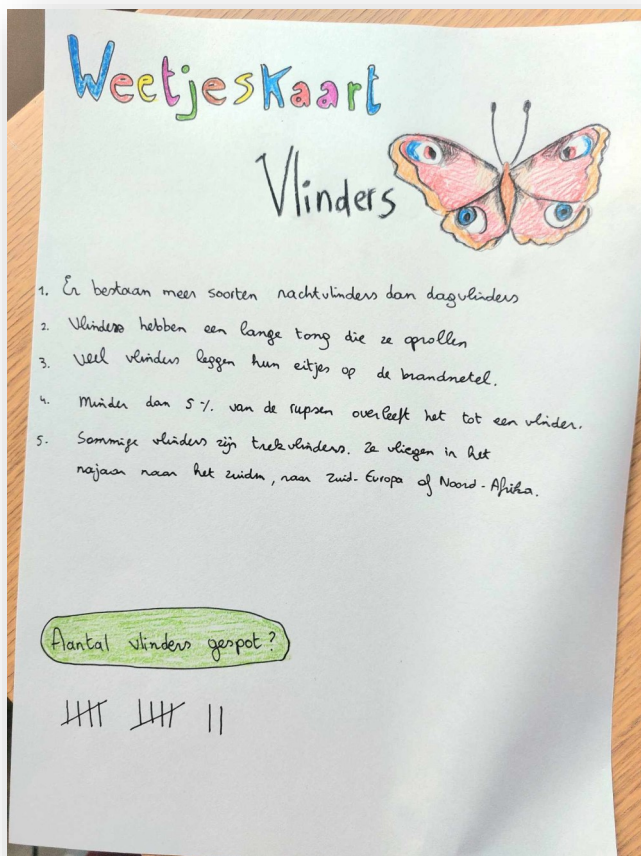 Weetjeskaart
Vlinders
1. Er bestaan meer soorten nachtvlinders dan dagvlinders
2. Vlinders hebben een lange tong die ze oprollen
3. Veel vlinders leggen hun eitjes op de brandnetel.
4. Minder dan 5% van de rupsen overleeft het tot een vlinder.
5. Sommige vlinders zijn trekvlinders. Ze vliegen in het
najaar naar het zuiden, naar Zuid-Europa of Noord-Afrika.
Aantal vlinders gespot?